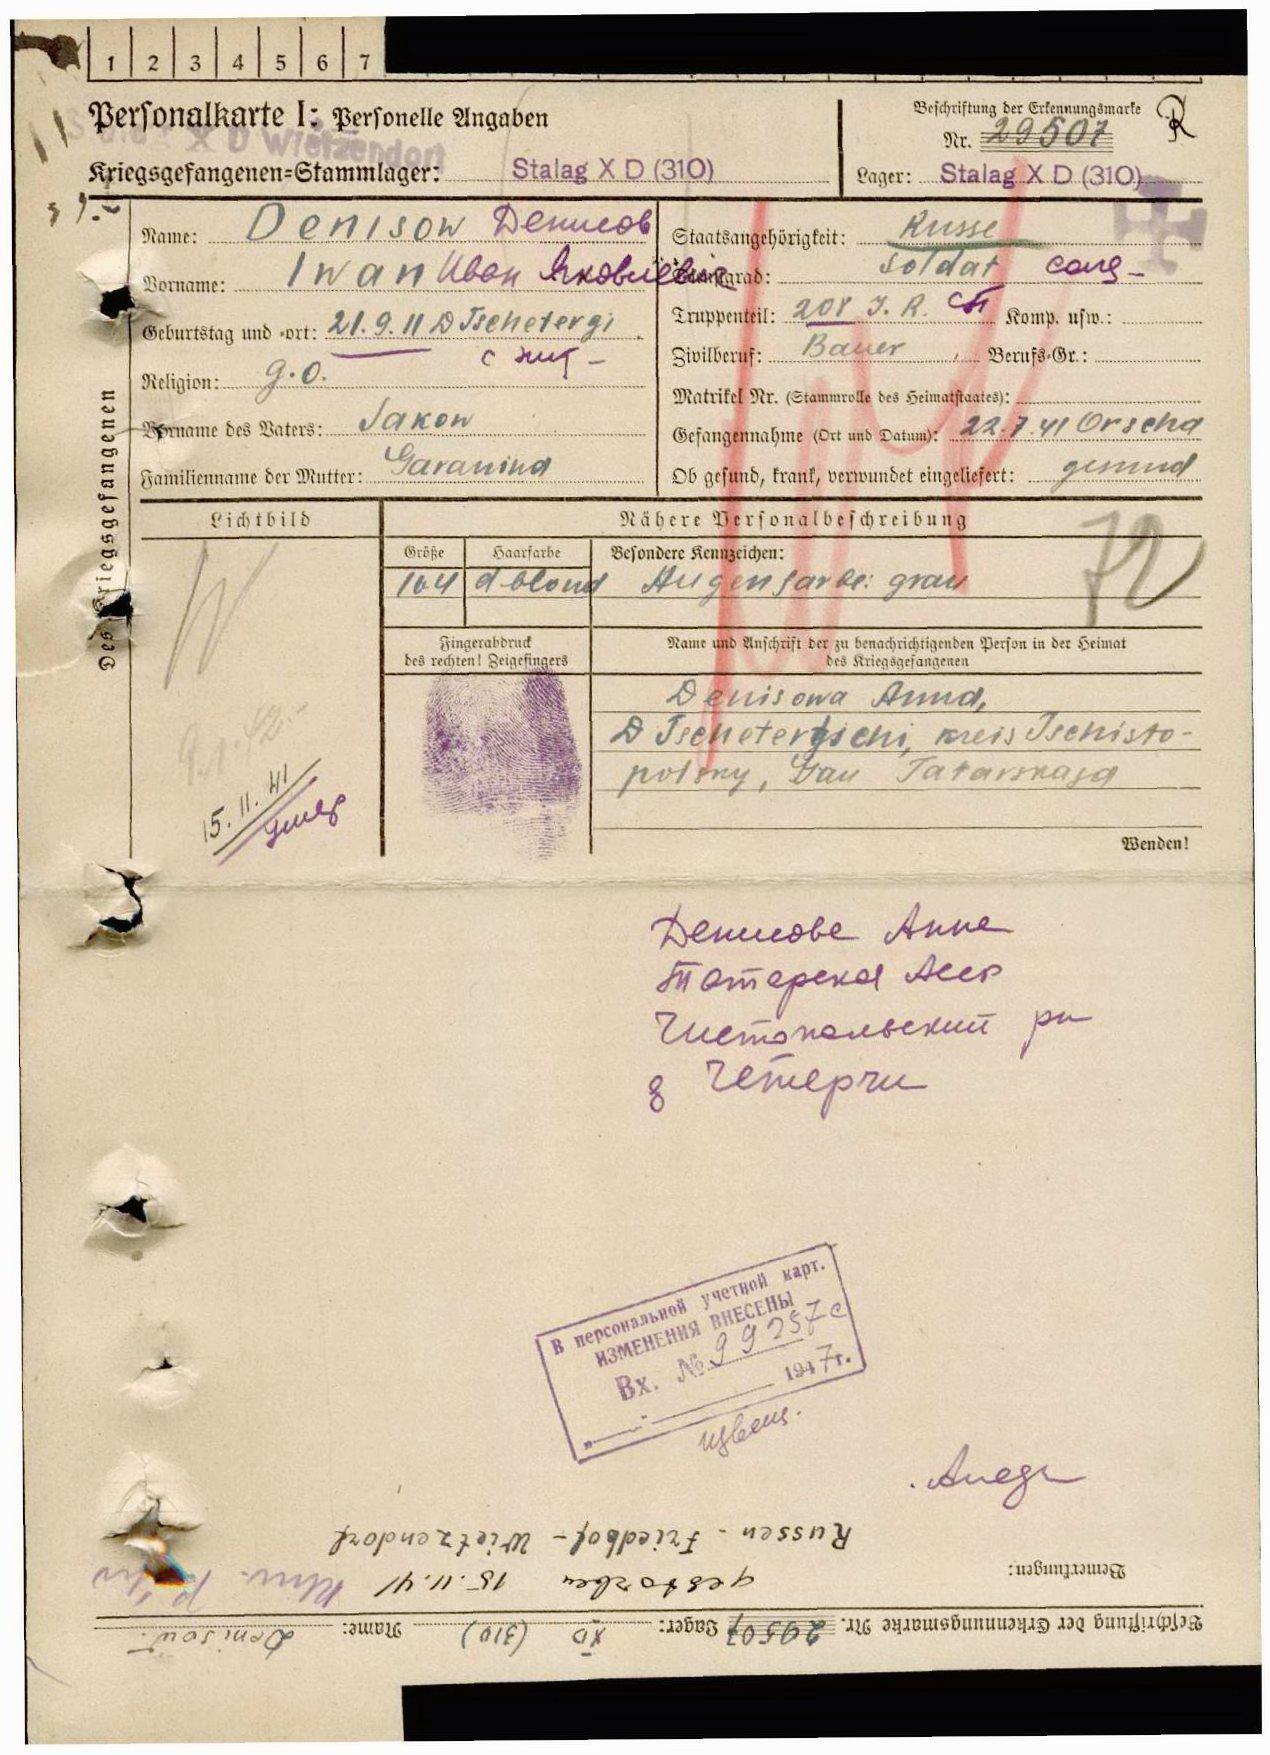 1 2 3 4 5 6 7
Personalkarte I: Personelle Angaben
Beschriftung der Erkennungsmarke
Nr. 29507
Stalag X D Wietzendorf
Kriegsgefangenen=Stammlager: Stalag X D (310)
Lager: Stalag X D (310)
Des Kriegsgefangenen
Name: Denisow Денисов
Vorname: Iwan Иван Яковлевич
Geburtstag und =ort: 21.9.11 D Tschetergi
Religion: g.o.
Vorname des Vaters: Jakow
Familienname der Mutter: Garanina
Staatsangehörigkeit: Russe
Dienstgrad: Soldat солд-
Truppenteil: 208 J. R. сп Komp. usw.:
Zivilberuf: Bauer Berufs=Gr.:
Matrikel Nr. (Stammrolle des Heimatstaates):
Gefangennahme (Ort und Datum): 22.7.41 Orscha
Ob gesund, krank, verwundet eingeliefert: gesund
Lichtbild
Nähere Personalbeschreibung
Größe Haarfarbe Besondere Kennzeichen:
164 d-blond Augenfarbe: grau
72
Fingerabdruck
des rechten! Zeigefingers
Name und Anschrift der zu benachrichtigenden Person in der Heimat
des Kriegsgefangenen
Denisowa Anna,
D Tschetertschi, Kreis Tschisto-
polsky, Gau Tatarskaja
15.11.41
умер
Wenden!
Денисове Анне
Татарская Асср
Чистопольский рн
д Четерчи
В персональной учетной карт.
ИЗМЕНЕНИЯ ВНЕСЕНЫ
Вх. № 99257с
1947г.
извещ.
Russen - Friedhof - Wietzendorf
Bemerkungen:
gestorben 15.11.41
Beschriftung der Erkennungsmarke Nr. 29507 Lager: XD (310) Name: Denisow